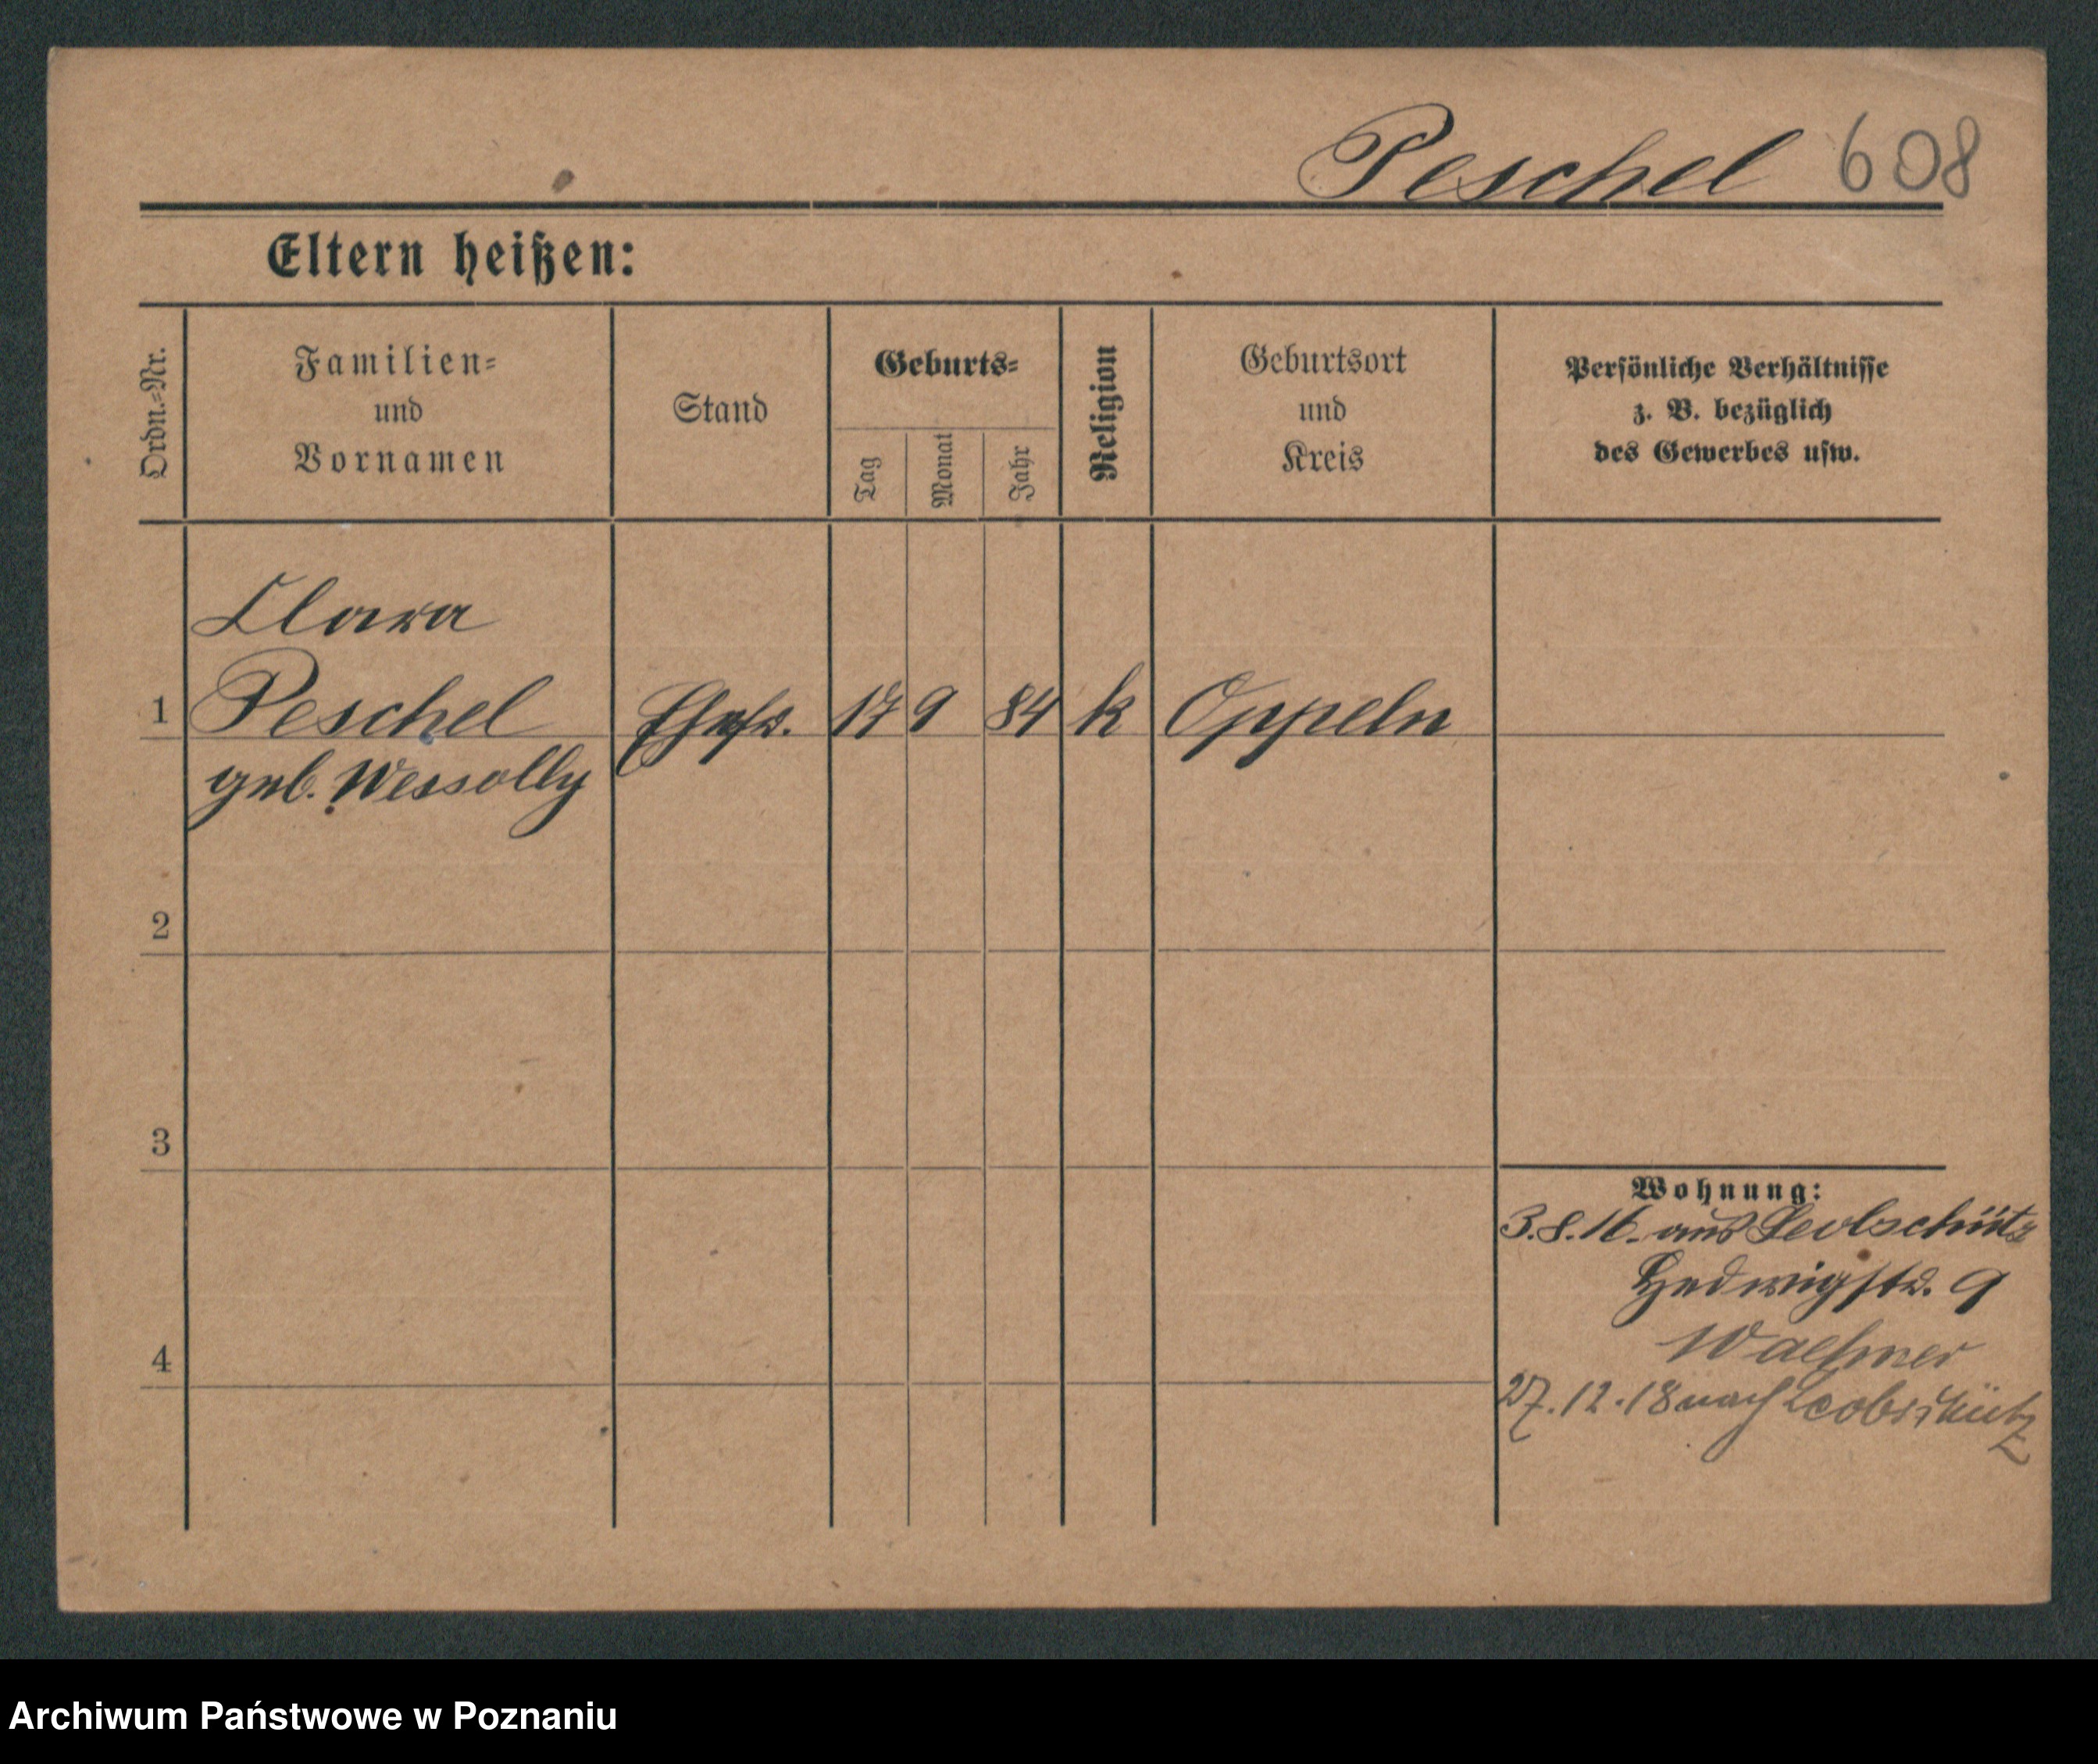 Peschel 608
Eltern heißen:
Ordn.-Nr.
Familien-
und
Vornamen
Stand
Geburts-
Tag
Monat
Jahr
Religion
Geburtsort
und
Kreis
Persönliche Verhältnisse
z. B. bezüglich
des Gewerbes usw.
Clara
1 Peschel Ehefr. 17 9 84 k Oppeln
geb. Wessolly
2
3
Wohnung:
3.8.16. aus Leobschütz
Hedwigstr. 9
4
27.12.18 nach Leobschütz
Archiwum Państwowe w Poznaniu